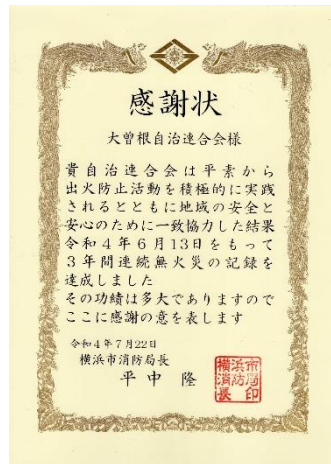 感謝状
大曽根自治連合会様
貴自治連合会は平素から
出火防止活動を積極的に実践
されるとともに地域の安全と
安心のために一致協力した結果
令和4年6月13日をもって
3年間連続無火災の記録を
達成しました
その功績は多大でありますので
ここに感謝の意を表します
令和4年7月22日
横浜市消防局長
平中 隆
横浜市
消防局
長印